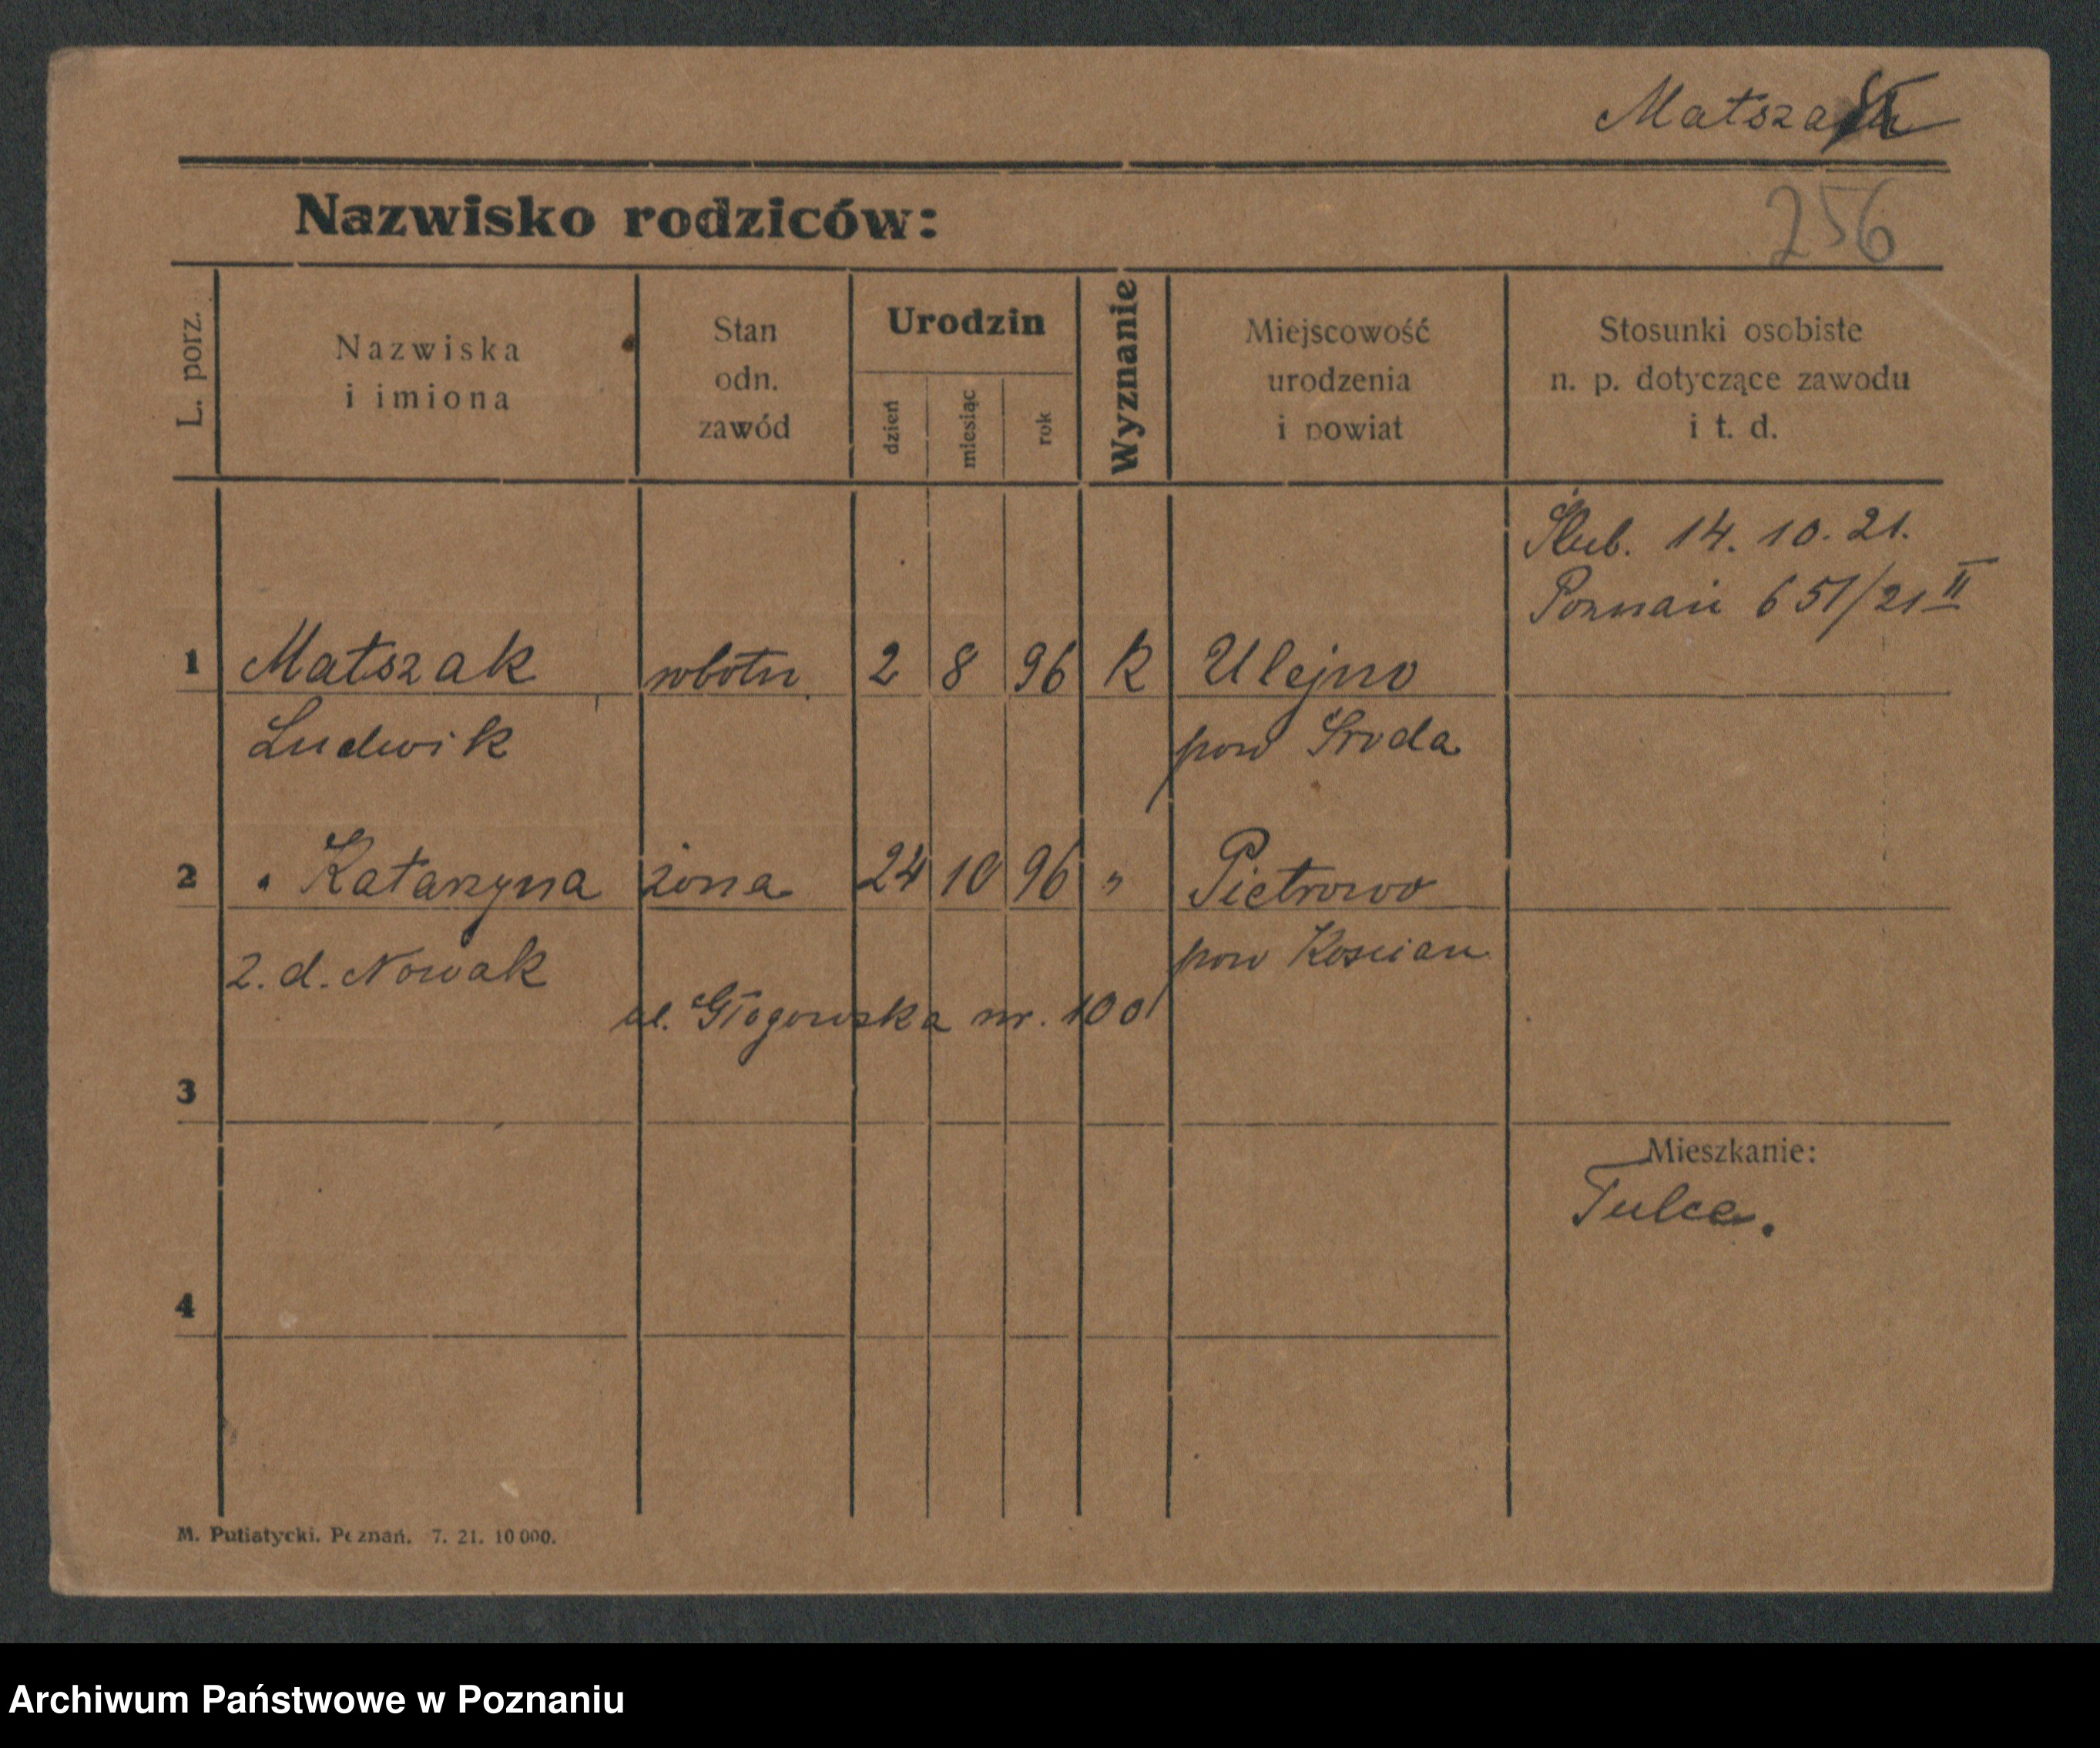 Matszak
Nazwisko rodziców:
256
L. porz.
Nazwiska
i imiona
Stan
odn.
zawód
Urodzin
dzień
miesiąc
rok
Wyznanie
Miejscowość
urodzenia
i powiat
Stosunki osobiste
n. p. dotyczące zawodu
i t. d.
Ślub. 14. 10. 21.
Poznań 651/21 II
1 Matszak robotn. 2 8 96 k Ulejno
Ludwik pow Środa
2 " Katarzyna żona 24 10 96 " Pietrowo
z. d. Nowak pow Koscian
ul. Głogowska nr. 100
3
Mieszkanie:
Tulce.
4
M. Putiatycki. Poznań. 7. 21. 10 000.
Archiwum Państwowe w Poznaniu